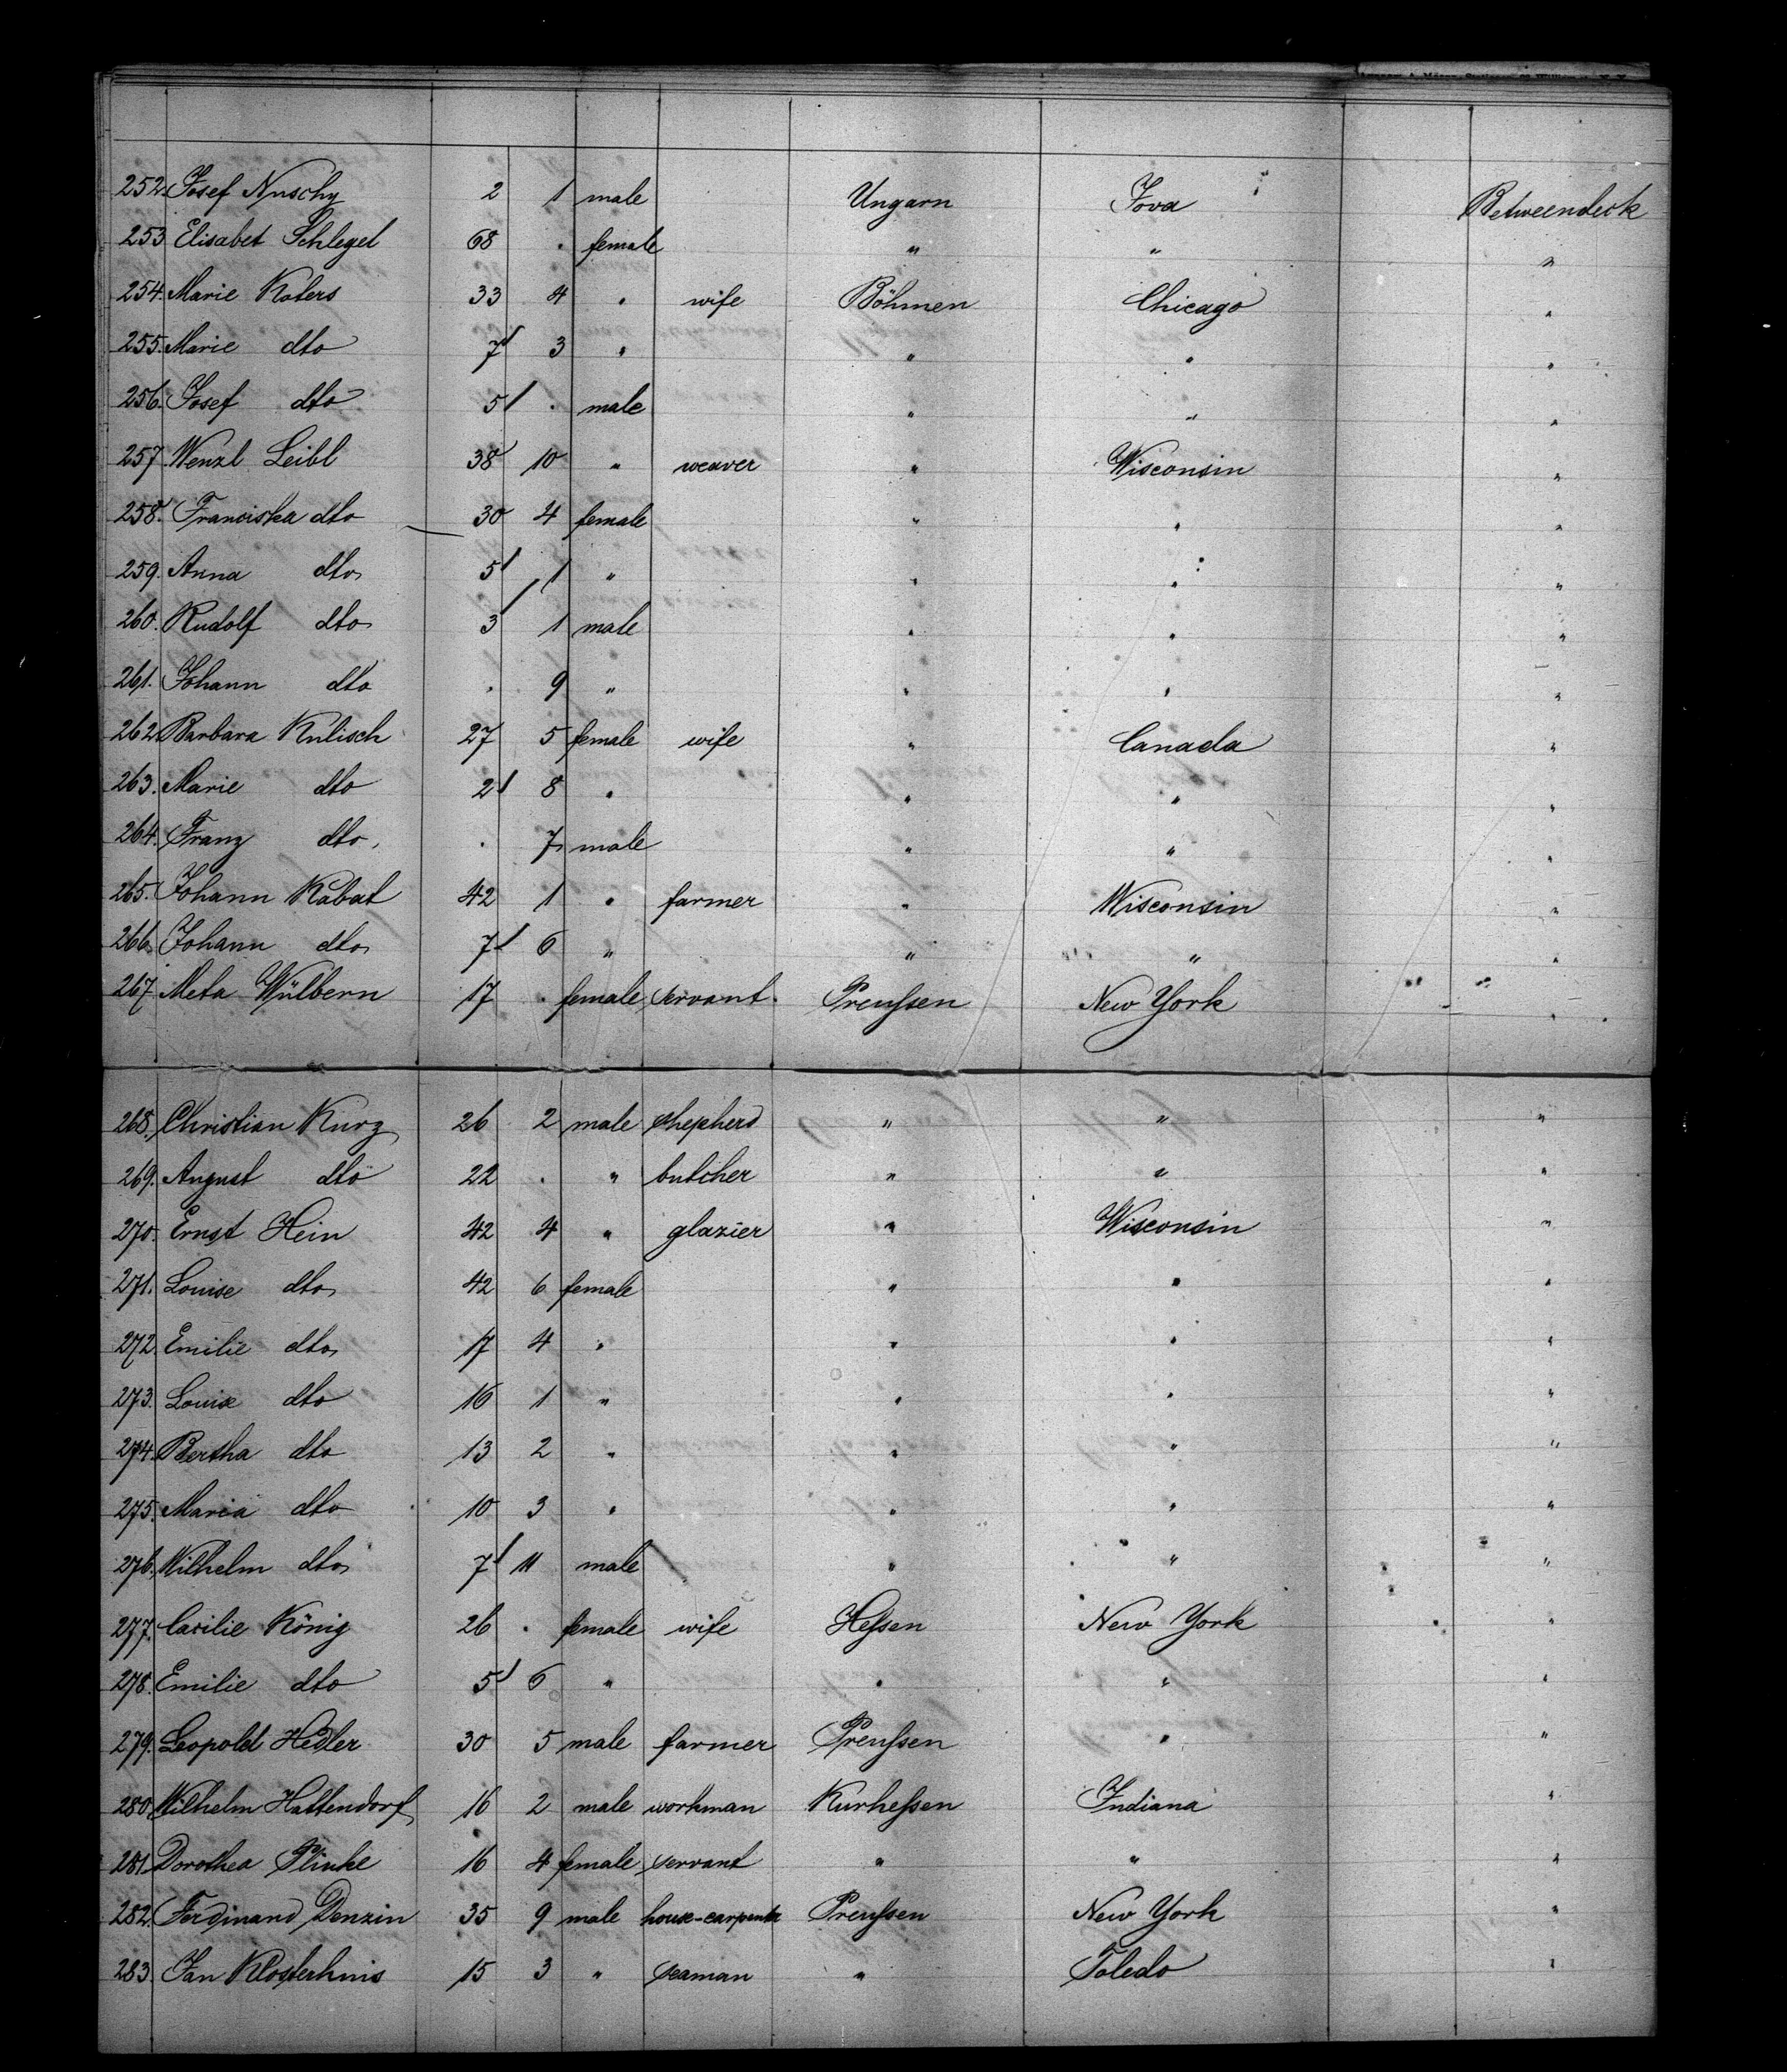 252. Josef Nuschy 2 1 male Ungarn Iova Betweendeck
253 Elisabet Schlegel 68 . female " " "
254. Marie Kolers 33 4 " wife Böhmen Chicago "
255. Marie dto 7 3 " " " "
256. Josef dto 5 . male " " "
257 Wenzl Leibl 38 10 " weaver " Wisconsin "
258. Franciska dto 30 4 female " " "
259. Anna dto 5 1 " " " "
260. Rudolf dto 3 1 male " " "
261. Johann dto . 9 " " " "
262. Barbara Kulisch 27 5 female wife " Canada "
263. Marie dto 2 8 " " " "
264. Franz dto . 7 male " " "
265. Johann Kabat 42 1 " farmer " Wisconsin "
266. Johann dto 7 6 " " " "
267 Meta Wülbern 17 . female servant. Preußen New York "
268. Christian Kurz 26 2 male shepherd " " "
269. August dto 22 . " butcher " " "
270. Ernst Hein 42 4 " glazier " Wisconsin "
271. Louise dto 42 6 female " " "
272. Emilie dto 17 4 " " " "
273. Louise dto 16 1 " " " "
274. Bertha dto 13 2 " " " "
275. Maria dto 10 3 " " " "
276. Wilhelm dto 7 11 male " " "
277. Cacilie König 26 . female wife Heßen New York "
278. Emilie dto 5 6 " " " "
279. Leopold Hedler 30 5 male farmer Preußen " "
280 Wilhelm Hattendorf 16 2 male workman Kurheßen Indiana "
281 Dorothea Plinke 16 4 female servant " " "
282. Ferdinand Denzin 35 9 male house-carpenter Preußen New York "
283. Jan Klosterhuis 15 3 " seaman " Toledo "